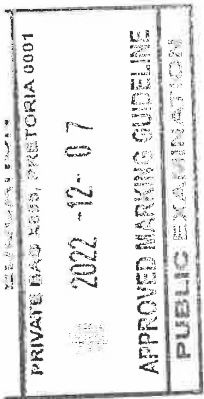 PRIVATE BAG X895, PRETORIA 0001
2022 -12- 07
APPROVED MARKING GUIDELINE
PUBLIC EXAMINATION